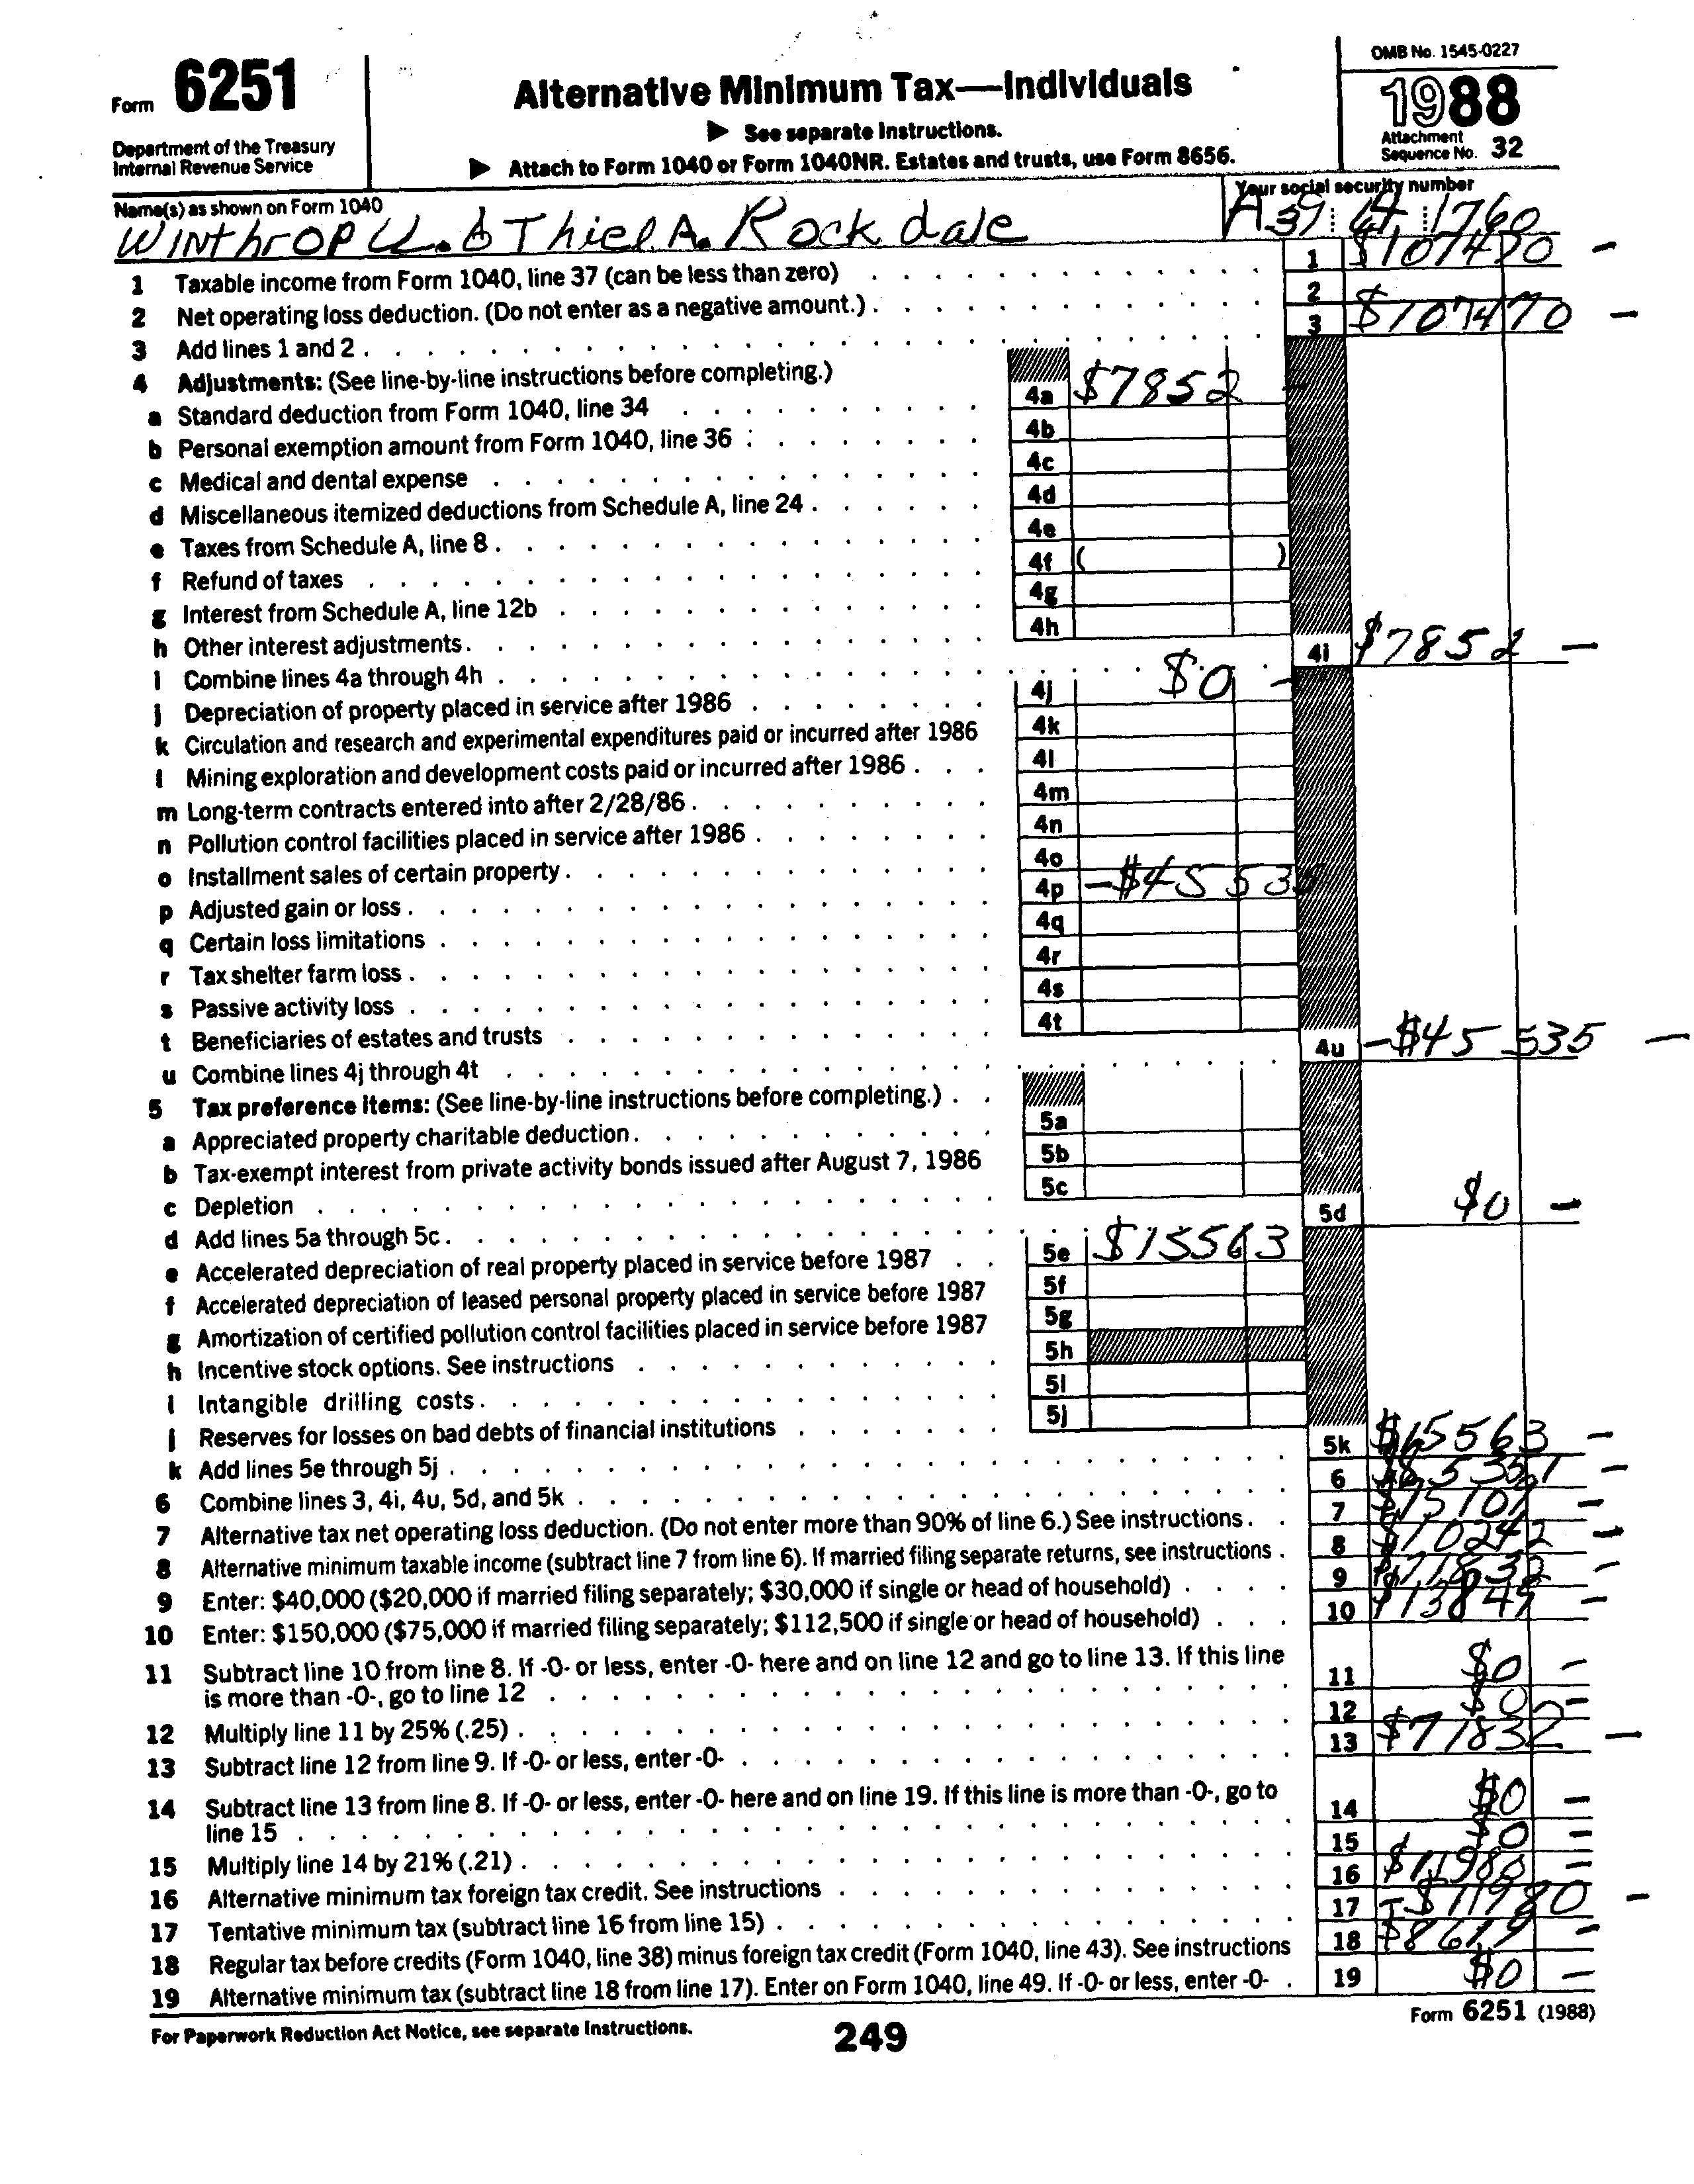 Form 6251
Department of the Treasury
Internal Revenue Service
Alternative Minimum Tax—Individuals
▶ See separate Instructions.
▶ Attach to Form 1040 or Form 1040NR. Estates and trusts, use Form 8656.
OMB No. 1545-0227
1988
Attachment
Sequence No. 32
Name(s) as shown on Form 1040
Your social security number
Winthrop U. & Thiel A. Rockdale
A39 64 1760
1 Taxable income from Form 1040, line 37 (can be less than zero) 1 $107470 -
2 Net operating loss deduction. (Do not enter as a negative amount.) 2
3 Add lines 1 and 2 3 $107470 -
4 Adjustments: (See line-by-line instructions before completing.)
a Standard deduction from Form 1040, line 34 4a $7852 -
b Personal exemption amount from Form 1040, line 36 4b
c Medical and dental expense 4c
d Miscellaneous itemized deductions from Schedule A, line 24 4d
e Taxes from Schedule A, line 8 4e
f Refund of taxes 4f ( )
g Interest from Schedule A, line 12b 4g
h Other interest adjustments 4h
i Combine lines 4a through 4h 4i $7852 -
j Depreciation of property placed in service after 1986 4j $0 -
k Circulation and research and experimental expenditures paid or incurred after 1986 4k
l Mining exploration and development costs paid or incurred after 1986 4l
m Long-term contracts entered into after 2/28/86 4m
n Pollution control facilities placed in service after 1986 4n
o Installment sales of certain property 4o
p Adjusted gain or loss 4p -$45535
q Certain loss limitations 4q
r Tax shelter farm loss 4r
s Passive activity loss 4s
t Beneficiaries of estates and trusts 4t
u Combine lines 4j through 4t 4u -$45535 -
5 Tax preference items: (See line-by-line instructions before completing.)
a Appreciated property charitable deduction 5a
b Tax-exempt interest from private activity bonds issued after August 7, 1986 5b
c Depletion 5c
d Add lines 5a through 5c 5d $0 -
e Accelerated depreciation of real property placed in service before 1987 5e $15563
f Accelerated depreciation of leased personal property placed in service before 1987 5f
g Amortization of certified pollution control facilities placed in service before 1987 5g
h Incentive stock options. See instructions 5h
i Intangible drilling costs 5i
j Reserves for losses on bad debts of financial institutions 5j
k Add lines 5e through 5j 5k $15563 -
6 Combine lines 3, 4i, 4u, 5d, and 5k 6
7 Alternative tax net operating loss deduction. (Do not enter more than 90% of line 6.) See instructions 7
8 Alternative minimum taxable income (subtract line 7 from line 6). If married filing separate returns, see instructions 8 $70242 -
9 Enter: $40,000 ($20,000 if married filing separately; $30,000 if single or head of household) 9 $71832 -
10 Enter: $150,000 ($75,000 if married filing separately; $112,500 if single or head of household) 10
11 Subtract line 10 from line 8. If -0- or less, enter -0- here and on line 12 and go to line 13. If this line
is more than -0-, go to line 12 11 $0 -
12 Multiply line 11 by 25% (.25) 12 $0 -
13 Subtract line 12 from line 9. If -0- or less, enter -0- 13 $71832 -
14 Subtract line 13 from line 8. If -0- or less, enter -0- here and on line 19. If this line is more than -0-, go to
line 15 14 $0 -
15 Multiply line 14 by 21% (.21) 15 $0 -
16 Alternative minimum tax foreign tax credit. See instructions 16 $11980 -
17 Tentative minimum tax (subtract line 16 from line 15) 17 -$11980 -
18 Regular tax before credits (Form 1040, line 38) minus foreign tax credit (Form 1040, line 43). See instructions 18 $8619 -
19 Alternative minimum tax (subtract line 18 from line 17). Enter on Form 1040, line 49. If -0- or less, enter -0- 19 $0 -
For Paperwork Reduction Act Notice, see separate Instructions.
249
Form 6251 (1988)